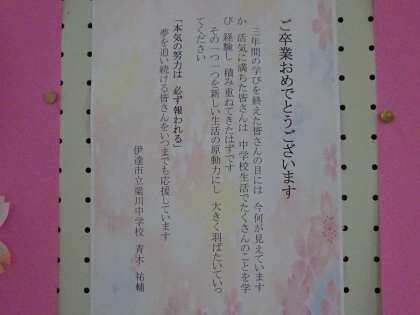 ご卒業おめでとうございます
三年間の学びを終えた皆さんの目には 今何が見えています
か 活気に満ちた皆さんは 中学校生活でたくさんのことを学
び 経験し 積み重ねてきたはずです
その一つ一つを新しい生活の原動力にし 大きく羽ばたいていっ
てください
「本気の努力は 必ず報われる」
夢を追い続ける皆さんをいつまでも応援しています
伊達市立梁川中学校 青木 祐輔